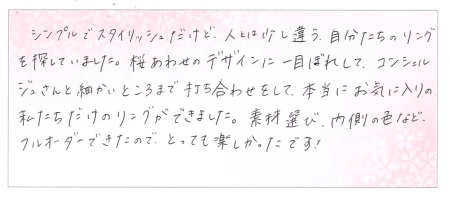 シンプルでスタイリッシュだけど、人とは少し違う、自分たちのリング
を探していました。桜あわせのデザインに一目ぼれして、コンシェル
ジュさんと細かいところまで打ち合わせをして、本当にお気に入りの、
私たちだけのリングができました。素材選び、内側の色など、
フルオーダーできたので、とっても楽しかったです!